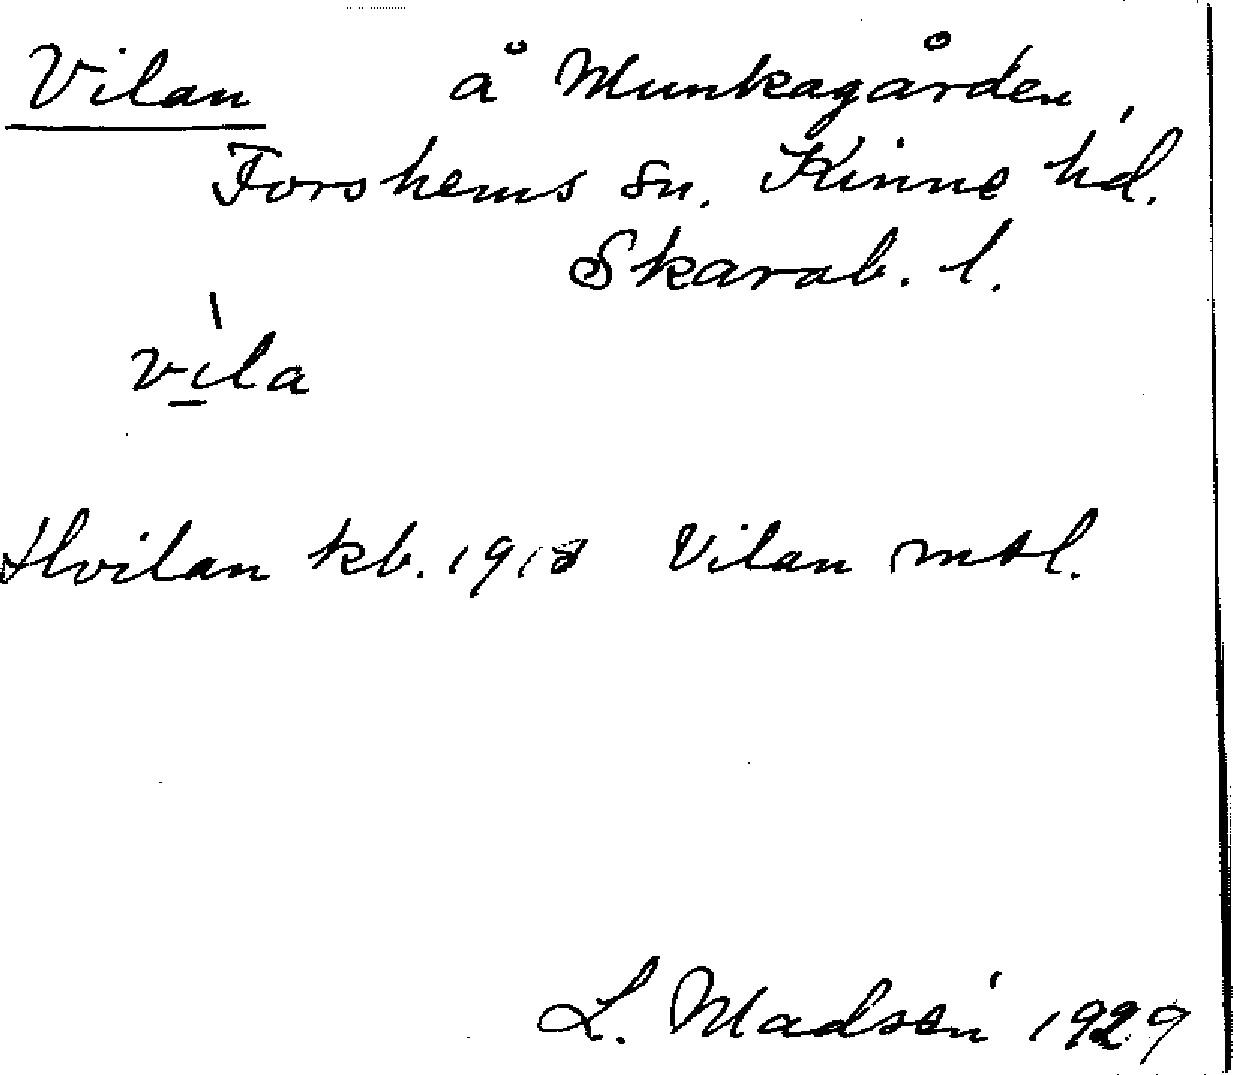 Vilan å Munkagården,
Forshems sn. Kinne hd.
Skarab. l.
vìla
Hvilan kb. 1918 Vilan mtl.
L. Madsén 1929